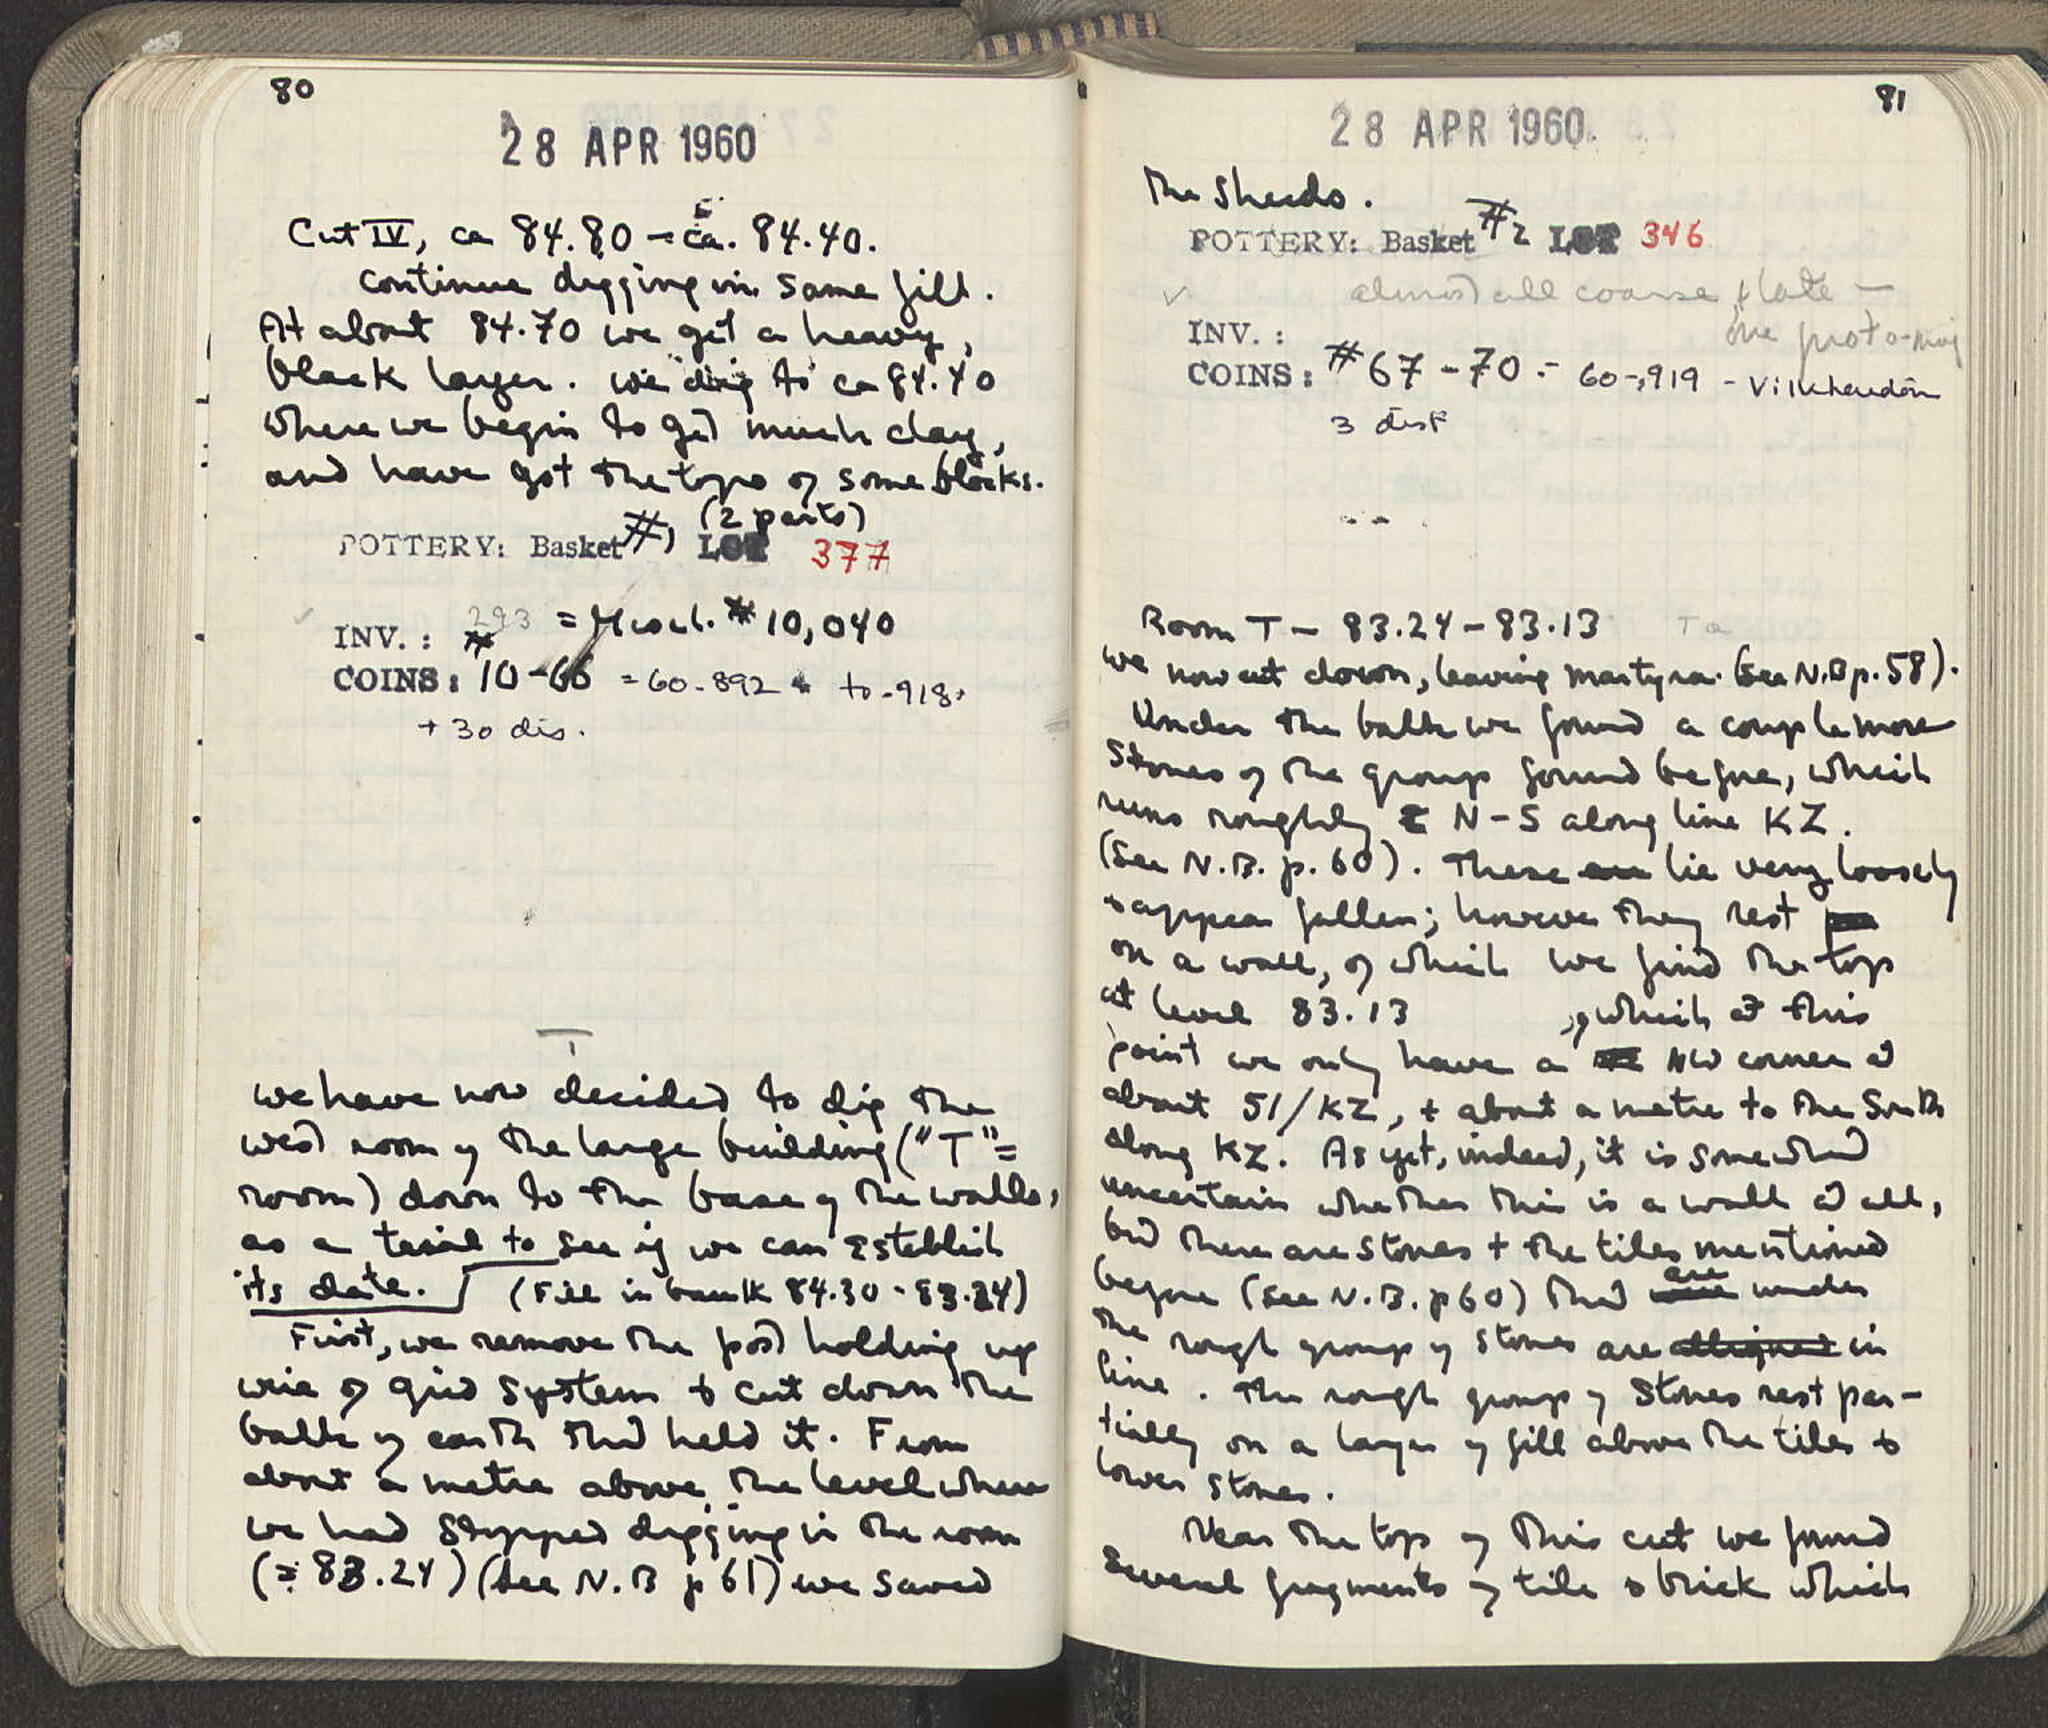 80
28 APR 1960
Cut IV, ca 84.80 - ca. 84.40.
Continue digging in same fill.
At about 84.70 we get a heavy,
black layer. We dig to ca 84.40
where we begin to get much clay,
and have got the tops of some blocks.
(2 parts)
POTTERY: Basket #1 LOT 377
INV.: # 293 = Miscl. # 10,040
COINS: 10-66 = 60-892 to -918.
+ 30 dis.
T
We have now decided to dig the
west room of the large building ("T" =
room) down to the base of the walls,
as a trial to see if we can establish
its date. (Fill in baulk 84.30 - 83.24)
First, we remove the post holding up
wire of grid system & cut down the
balk of earth that held it. From
about a metre above the level where
we had stopped digging in the room
(= 83.24) (see N.B p 61) we saved
81
28 APR 1960
the sherds.
POTTERY: Basket #2 LOT 346
almost all coarse & late -
one proto-maj
INV.:
COINS: # 67-70 - 60-919 - Villehardouin
3 dist
Room T - 83.24 - 83.13
We now cut down, leaving martyra. (See N.B p. 58).
Under the balk we found a couple more
stones of the group found before, which
runs roughly N-S along line KZ.
(See N.B. p. 60). These lie very loosely
& appear fallen; however they rest
on a wall, of which we find the top
at level 83.13 , of which at this
point we only have a NW corner at
about 51/KZ, + about a metre to the South
along KZ. As yet, indeed, it is somewhat
uncertain whether this is a wall at all,
but there are stones + the tiles mentioned
before (see N.B. p 60) that are under
the rough group of stones are in
line. The rough group of stones rest par-
tially on a layer of fill above the tiles &
lower stones.
Near the top of this cut we found
several fragments of tile & brick which